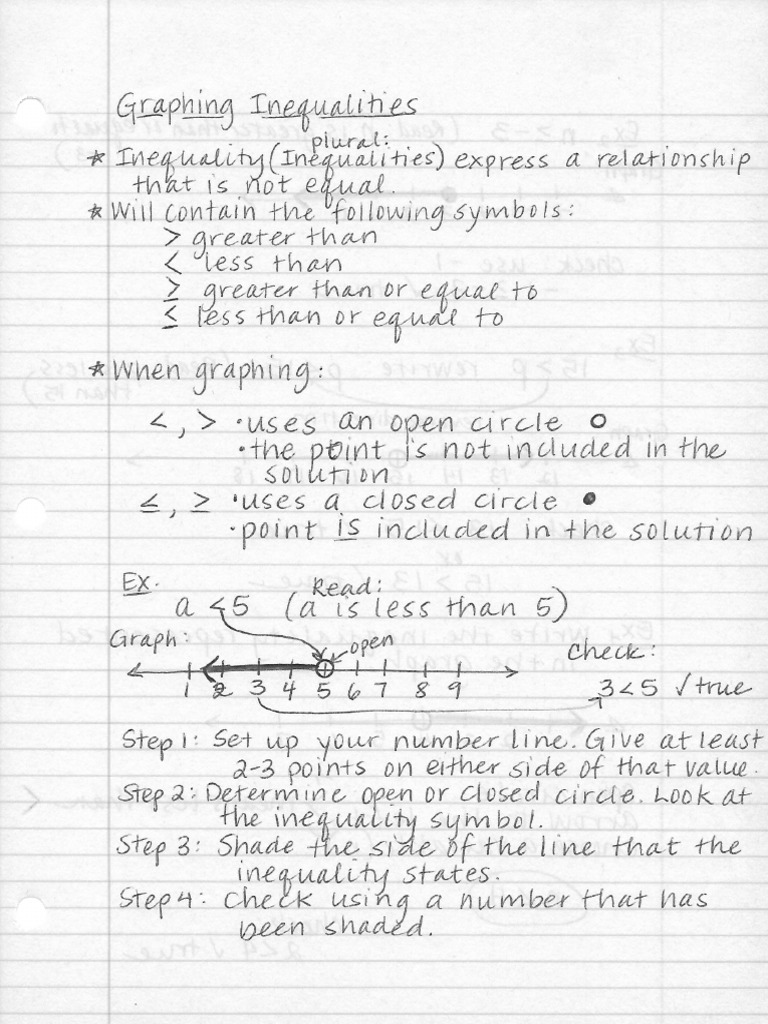 Graphing Inequalities
plural:
* Inequality (Inequalities) express a relationship
that is not equal.
* Will contain the following symbols:
> greater than
< less than
≥ greater than or equal to
≤ less than or equal to
* When graphing:
<, > • uses an open circle ○
• the point is not included in the
solution
≤, ≥ • uses a closed circle ●
• point is included in the solution
Ex. Read:
a < 5 (a is less than 5)
Graph: open
Check:
1 2 3 4 5 6 7 8 9
3 < 5 √ true
Step 1: Set up your number line. Give at least
2-3 points on either side of that value.
Step 2: Determine open or closed circle. Look at
the inequality symbol.
Step 3: Shade the side of the line that the
inequality states.
Step 4: Check using a number that has
been shaded.